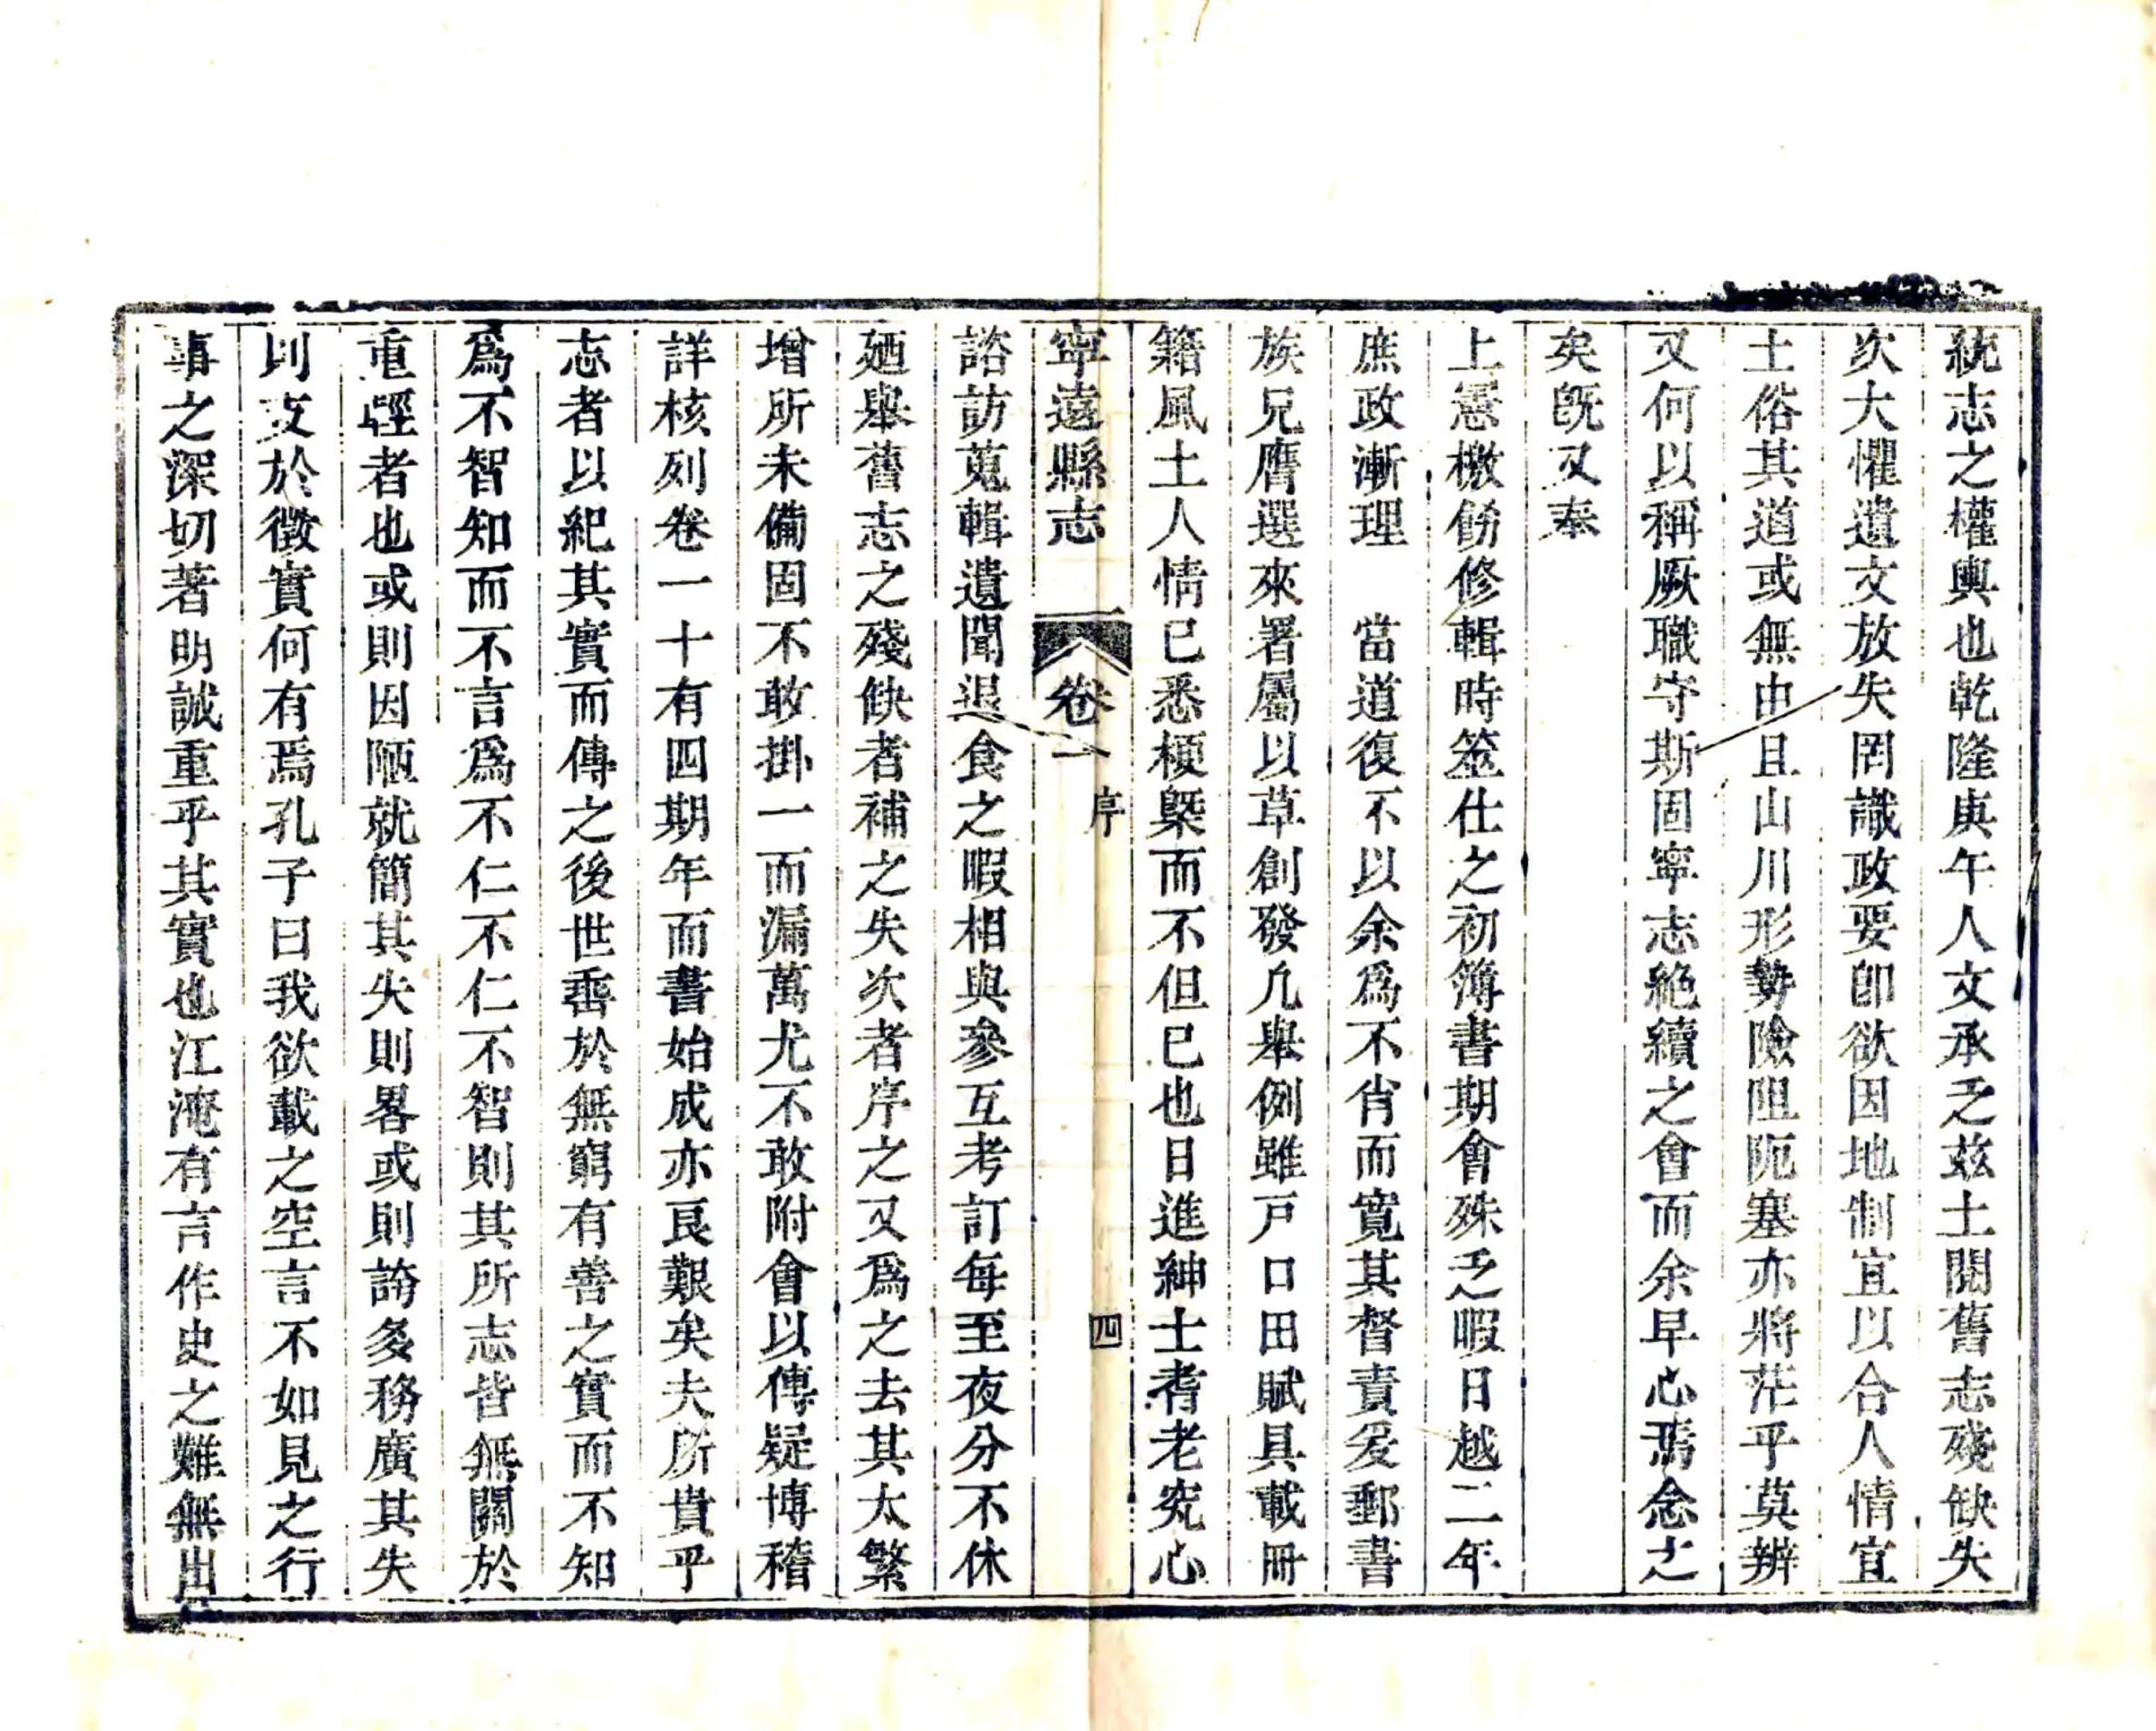 統志之權輿也乾隆庚午人文承乏茲土閱舊志殘缺失
次大懼遺文放失罔識政要卽欲因地制宜以合人情宜
土俗其道或無由且山川形勢險阻阨塞亦將茫乎莫辨
又何以稱厥職守斯固寧志絶續之會而余早心焉念之
矣旣又奉
上憲檄飭修輯時筮仕之初簿書期會殊乏暇日越二年
庶政漸理　當道復不以余爲不肖而寬其督責爰郵書
族兄膺選來署屬以草創發凡舉例雖戸口田賦具載冊
籍風土人情已悉梗槩而不但已也日進紳士耆老究心
寧遠縣志　卷一　序　四
諮訪蒐輯遺聞退食之暇相與參互考訂每至夜分不休
廼舉舊志之殘缺者補之失次者序之又爲之去其太繁
增所未備固不敢掛一而漏萬尤不敢附會以傳疑博稽
詳核列卷一十有四期年而書始成亦良艱矣夫所貴乎
志者以紀其實而傳之後世垂於無窮有善之實而不知
爲不智知而不言爲不仁不仁不智則其所志皆無關於
重輕者也或則因陋就簡其失則畧或則誇多務廣其失
則支於徵實何有焉孔子曰我欲載之空言不如見之行
事之深切著明誠重乎其實也江淹有言作史之難無出